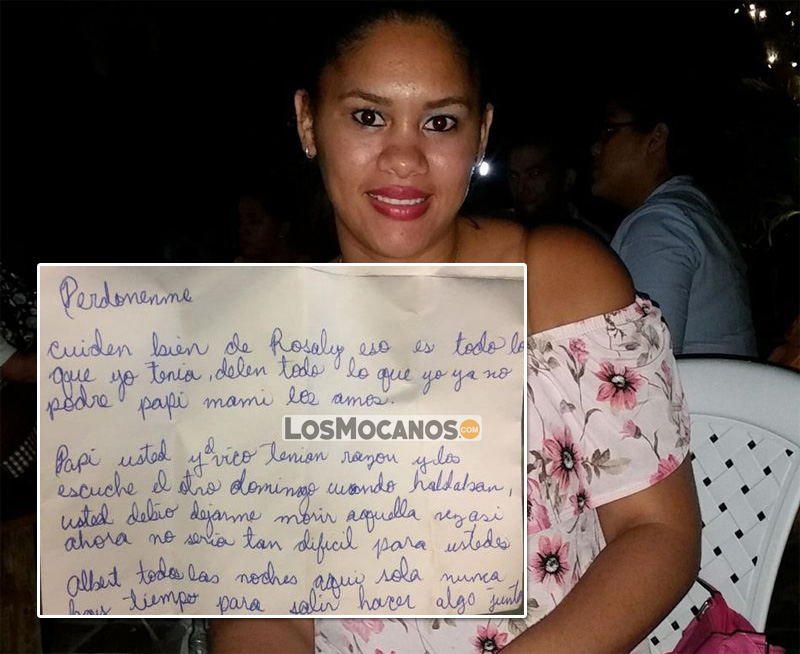 Perdonenme
cuiden bien de Rosaly eso es todo lo
que yo tenia, delen todo lo que yo ya no
podre papi mami los amos.
LosMocanos.com
Papi usted y d vico tenian razon y los
escuche el otro domingo cuando hablaban,
usted debio dejarme morir aquella vez asi
ahora no seria tan dificil para ustedes
Albert todas las noches aqui sola nunca
hay tiempo para salir hacer algo junto